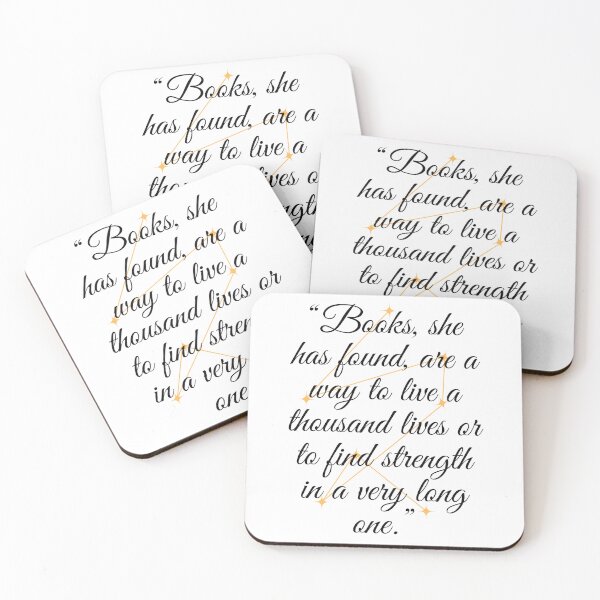 “Books, she
has found, are a
way to live a
lives
“Books, she
has found, are a
way to live a
thousand lives or
to find strength
“Books, she
has found, are a
way to live a
thousand lives or
to find
in a very
one
“Books, she
has found, are a
way to live a
thousand lives or
to find strength
in a very long
one.”